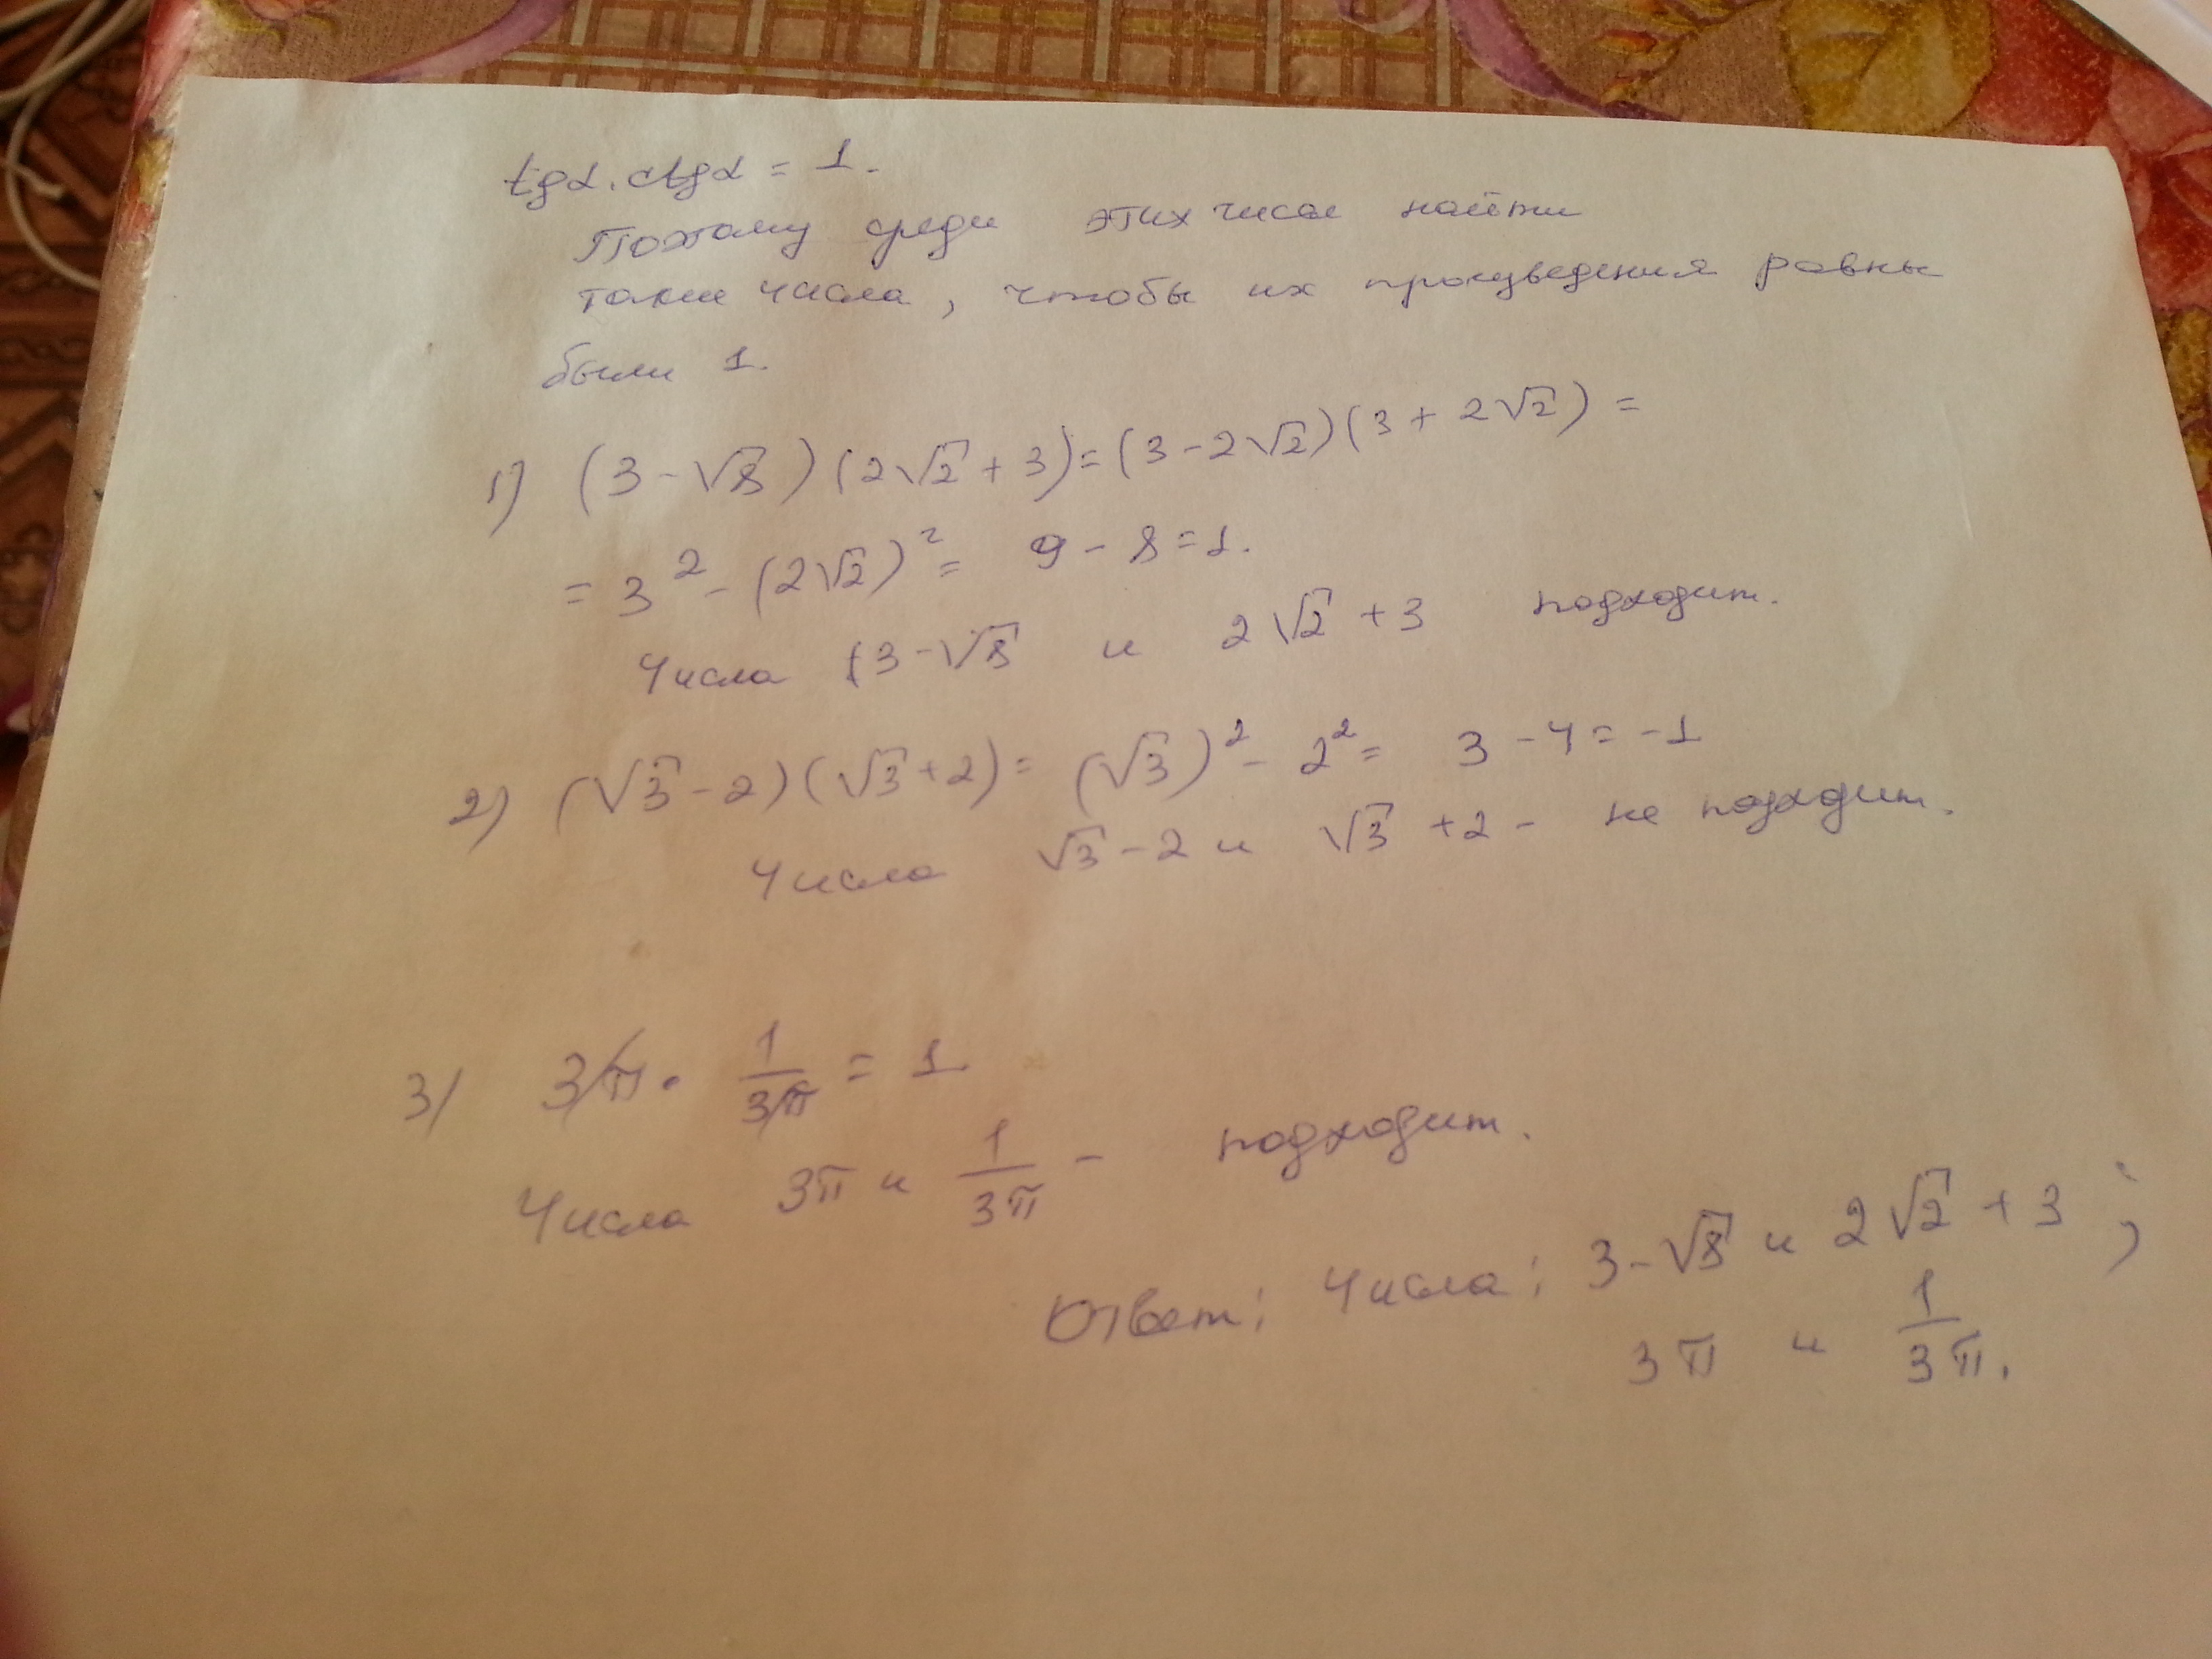 tgα · ctgα = 1.
Поэтому среди этих чисел найти
такие числа, чтобы их произведения равны
были 1.
1) (3 - √8)(2√2 + 3) = (3 - 2√2)(3 + 2√2) =
= 3² - (2√2)² = 9 - 8 = 1.
Числа (3 - √8 и 2√2 + 3 подходит.
2) (√3 - 2)(√3 + 2) = (√3)² - 2² = 3 - 4 = -1
Числа √3 - 2 и √3 + 2 - не подходит.
3) 3π · 1/3π = 1
Числа 3π и 1/3π - подходит.
Ответ: Числа: 3 - √8 и 2√2 + 3;
3π и 1/3π.